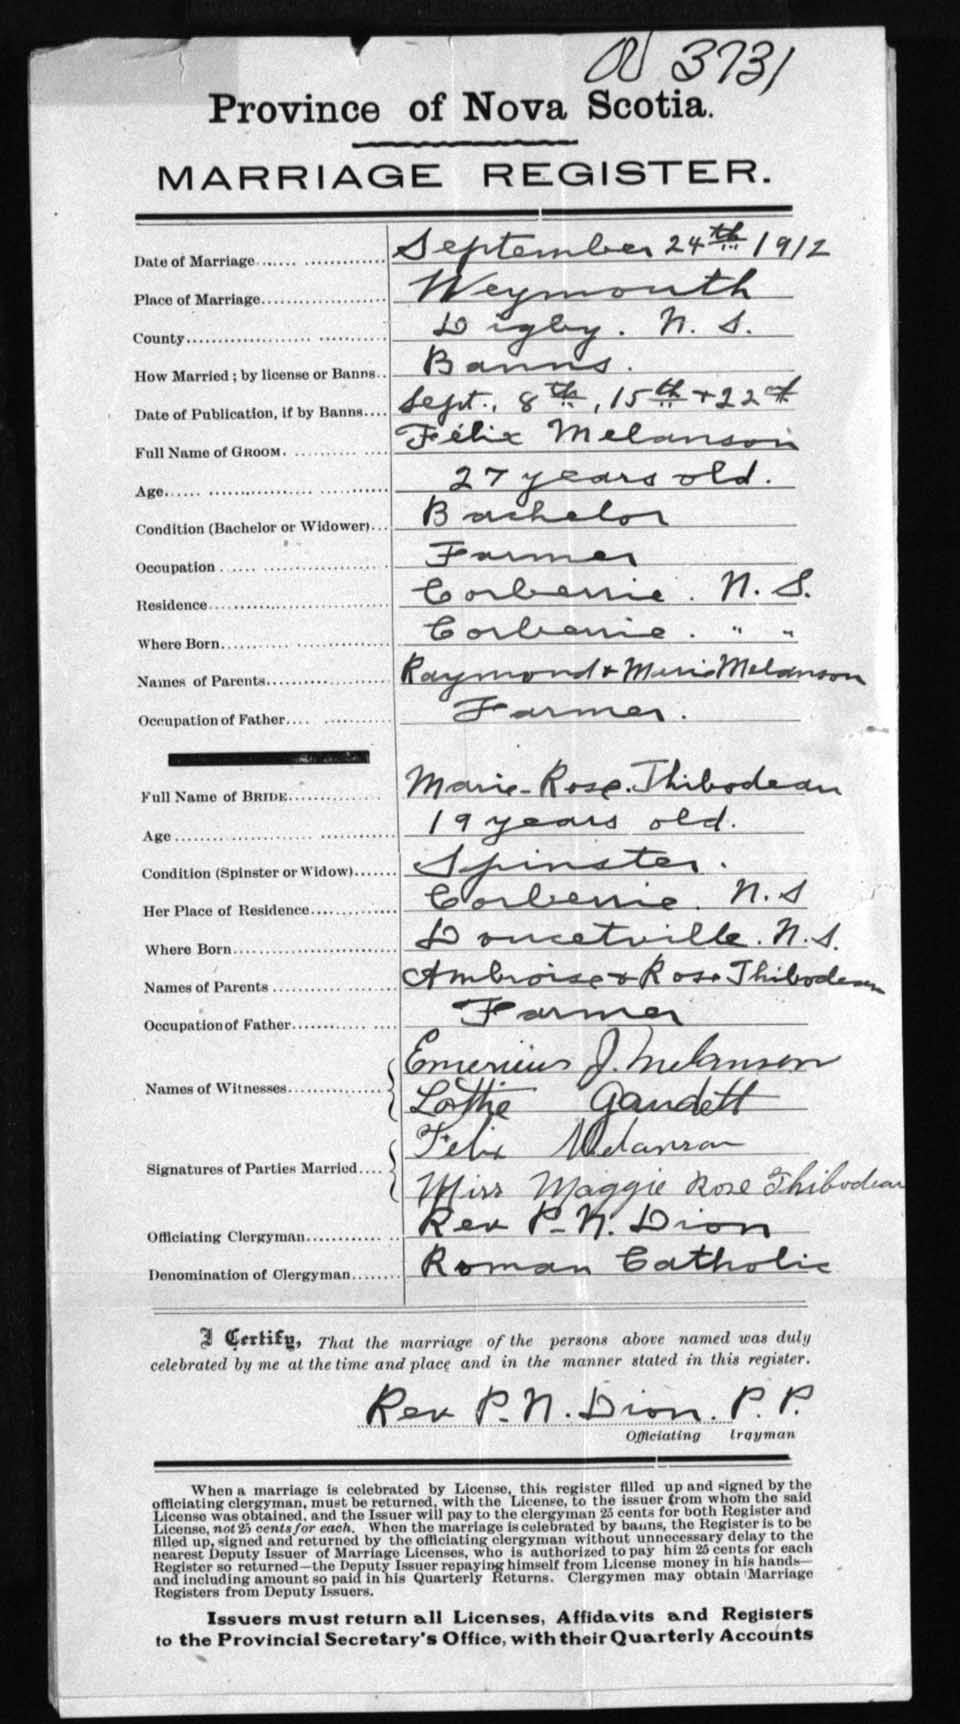 3731
Province of Nova Scotia.
MARRIAGE REGISTER.
Date of Marriage.................. September 24th 1912
Place of Marriage.................. Weymouth
County.................. Digby. N. S.
How Married; by license or Banns.. Banns.
Date of Publication, if by Banns.... Sept., 8th, 15th + 22nd
Full Name of GROOM.................. Félix Melanson
Age.................. 27 years old.
Condition (Bachelor or Widower)... Bachelor
Occupation.................. Farmer
Residence.................. Corberrie. N. S.
Where Born.................. Corberrie. " "
Names of Parents.................. Raymond & Marie Melanson
Occupation of Father.................. Farmer.
Full Name of BRIDE.................. Marie-Rose Thibodeau
Age.................. 19 years old.
Condition (Spinster or Widow)....... Spinster.
Her Place of Residence.................. Corberrie. N. S
Where Born.................. Doucetville. N. S.
Names of Parents.................. Ambroise & Rose Thibodeau
Occupation of Father.................. Farmer
Names of Witnesses.................. J. Melanson
Lottie Gaudett
Signatures of Parties Married.... Felix Melanson
Miss Maggie Rose Thibodeau
Officiating Clergyman.................. Rev P. N. Dion
Denomination of Clergyman........ Roman Catholic
I Certify, That the marriage of the persons above named was duly
celebrated by me at the time and place and in the manner stated in this register.
Rev P. N. Dion. P. P.
Officiating lrgyman
When a marriage is celebrated by License, this register filled up and signed by the
officiating clergyman, must be returned, with the License, to the issuer from whom the said
License was obtained, and the Issuer will pay to the clergyman 25 cents for both Register and
License, not 25 cents for each. When the marriage is celebrated by banns, the Register is to be
filled up, signed and returned by the officiating clergyman without unnecessary delay to the
nearest Deputy Issuer of Marriage Licenses, who is authorized to pay him 25 cents for each
Register so returned—the Deputy Issuer repaying himself from License money in his hands—
and including amount so paid in his Quarterly Returns. Clergymen may obtain Marriage
Registers from Deputy Issuers.
Issuers must return all Licenses, Affidavits and Registers
to the Provincial Secretary's Office, with their Quarterly Accounts